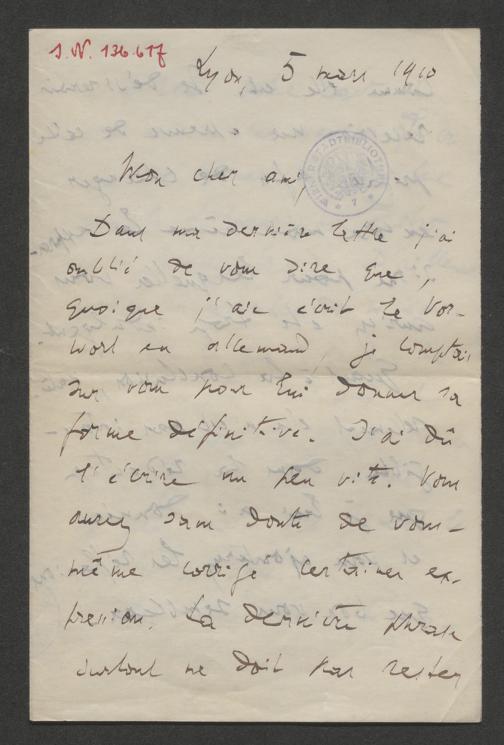 J.N. 136.617
Lyon, 5 mars 1910
Mon cher ami,
Dans ma dernière lettre j'ai
oublié de vous dire que,
quoique j'aie écrit le Vor-
wort en allemand, je comptais
sur vous pour lui donner sa
forme définitive. J'ai dû
l'écrire un peu vite. Vous
aurez sans doute de vous-
même corrigé certaines ex-
pressions. La dernière phrase
surtout ne doit pas rester